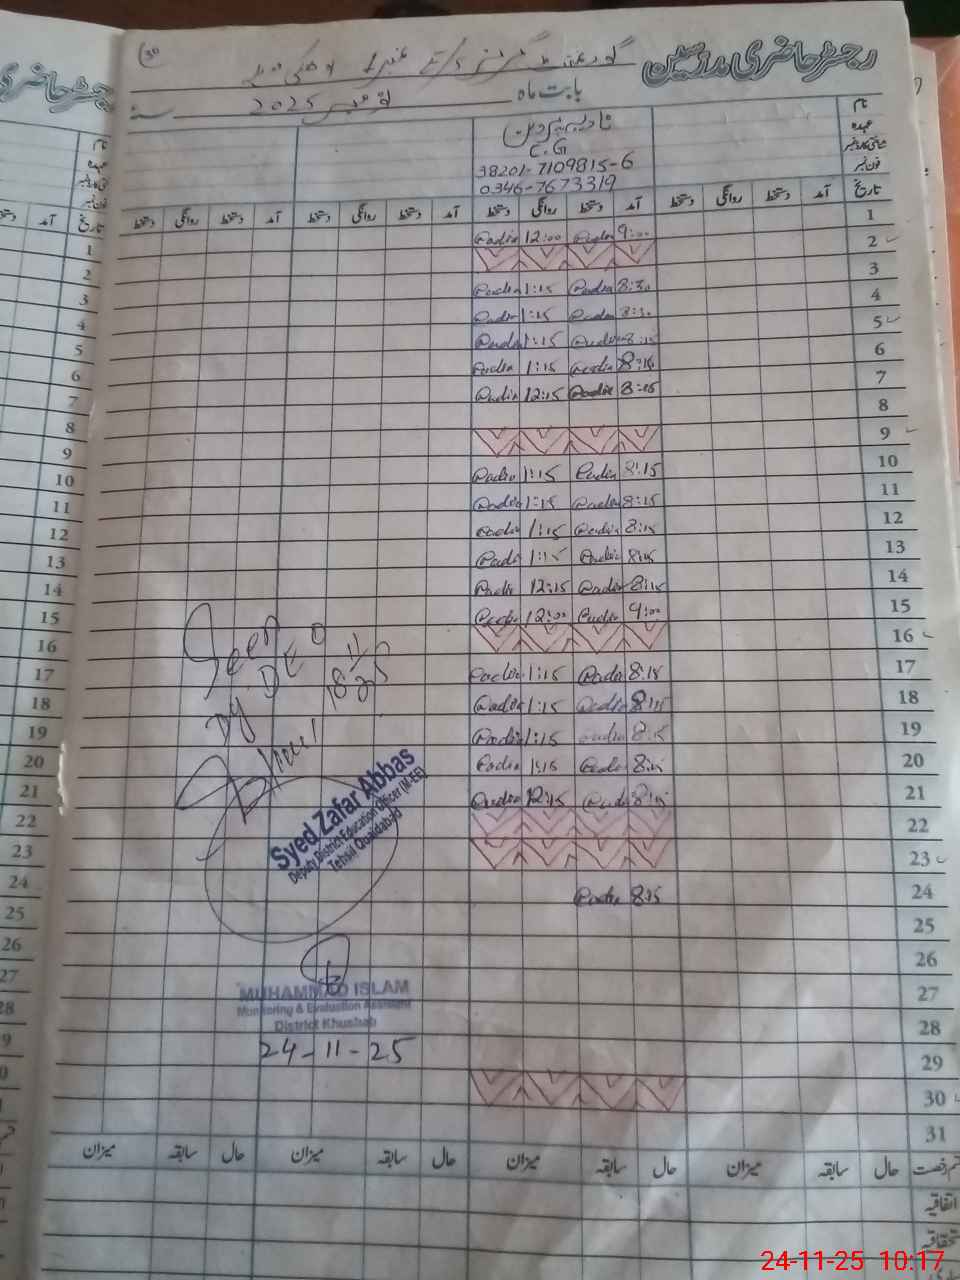 رجسٹر حاضری مدرسین
بابت ماہ نومبر 2025 سنہ
30
نام
عہدہ
شناختی کارڈ نمبر
فون نمبر
نادیہ پروین
C.G
38201-7109815-6
0346-7673319
تاریخ آمد دستخط روانگی دستخط آمد دستخط روانگی دستخط آمد دستخط روانگی دستخط آمد دستخط روانگی دستخط
1 9:00 Nadia 12:00 Nadia
2
3 8:30 Nadia 1:15 Nadia
4 8:30 Nadia 1:15 Nadia
5 8:15 Nadia 1:15 Nadia
6 8:15 Nadia 1:15 Nadia
7 8:15 Nadia 12:15 Nadia
8
9
10 8:15 Nadia 1:15 Nadia
11 8:15 Nadia 1:15 Nadia
12 8:15 Nadia 1:15 Nadia
13 8:15 Nadia 1:15 Nadia
14 8:15 Nadia 12:15 Nadia
15 9:00 Nadia 12:00 Nadia
16
17 8:15 Nadia 1:15 Nadia
18 8:15 Nadia 1:15 Nadia
19 8:15 Nadia 1:15 Nadia
20 8:15 Nadia 1:15 Nadia
21 8:15 Nadia 12:15 Nadia
22
23
24 8:15 Nadia
25
26
27
28
29
30
31
Seen
Dy DEO
18/11/25
Syed Zafar Abbas
Deputy District Education Officer (M-EE)
Tehsil Quaidabad
MUHAMMAD ISLAM
Monitoring & Evaluation Assistant
District Khushab
24-11-25
حال سابقہ میزان حال سابقہ میزان حال سابقہ میزان حال سابقہ میزان
قسم رخصت
اتفاقیہ
24-11-25 10:17